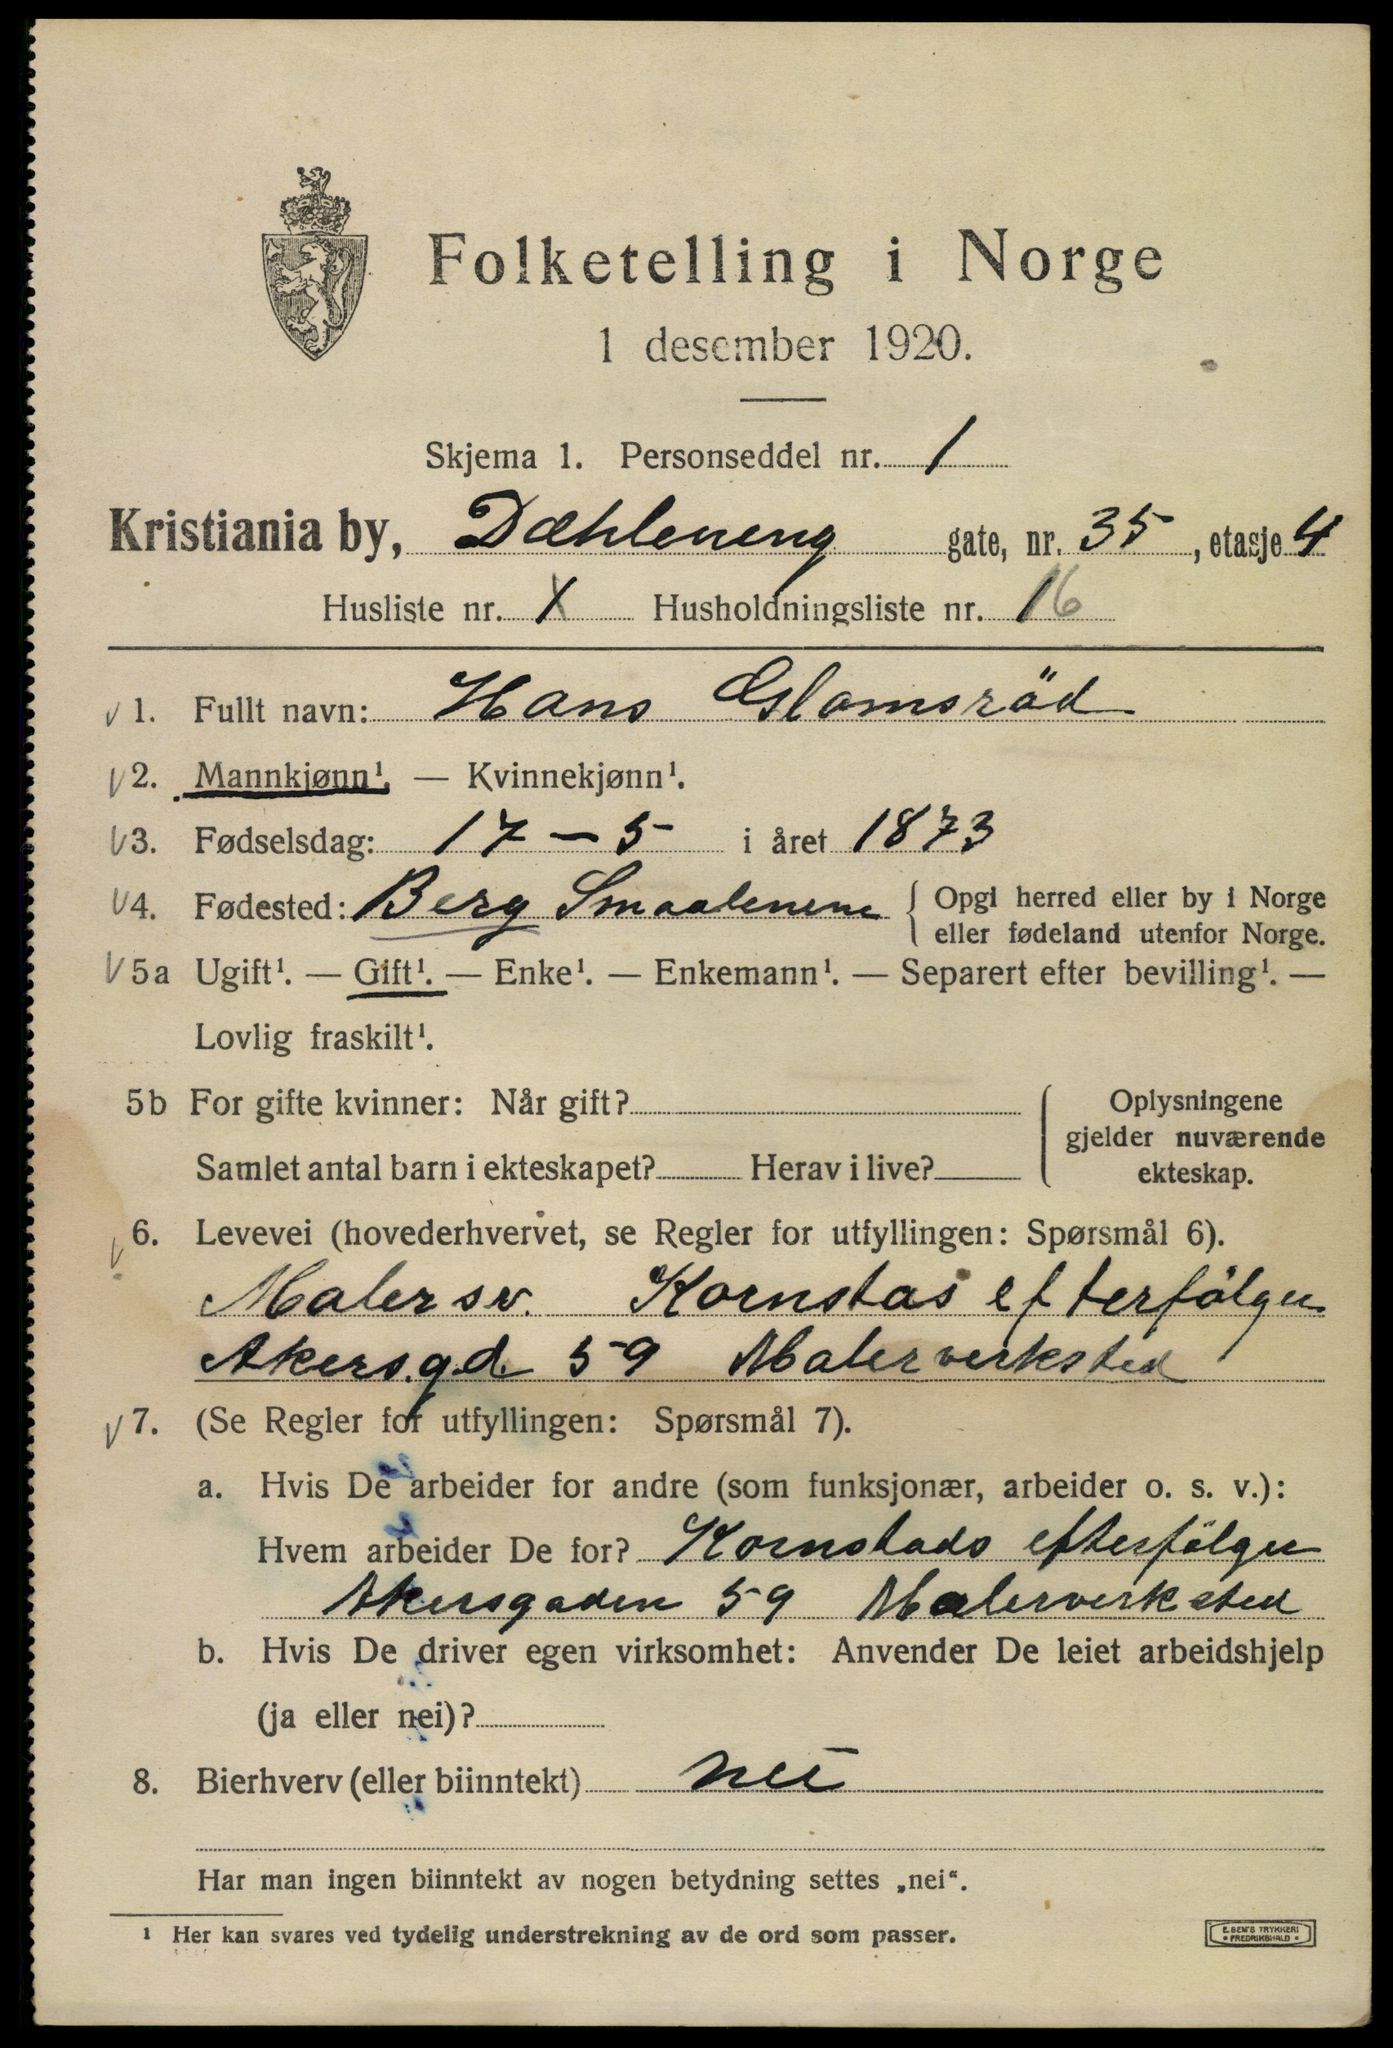 Folketelling i Norge
1 desember 1920.
Skjema 1. Personseddel nr. 1
Kristiania by, Dæhleneng gate, nr. 35, etasje 4
Husliste nr. X Husholdningsliste nr. 16
1. Fullt navn: Hans Glomsröd
2. Mannkjønn¹. — Kvinnekjønn¹.
3. Fødselsdag: 17 – 5 i året 1873
4. Fødested: Berg Smaalenene { Opgi herred eller by i Norge
eller fødeland utenfor Norge.
5a Ugift¹. — Gift¹. — Enke¹. — Enkemann¹. — Separert efter bevilling¹. —
Lovlig fraskilt¹.
5b For gifte kvinner: Når gift?
Samlet antal barn i ekteskapet? Herav i live?
Oplysningene
gjelder nuværende
ekteskap.
6. Levevei (hovederhvervet, se Regler for utfyllingen: Spørsmål 6).
Malersv. Kornstas efterfölger
Akersgd. 59 Malerverksted
7. (Se Regler for utfyllingen: Spørsmål 7).
a. Hvis De arbeider for andre (som funksjonær, arbeider o. s. v.):
Hvem arbeider De for? Kornstads efterfölger
Akersgaden 59 Malerverksted
b. Hvis De driver egen virksomhet: Anvender De leiet arbeidshjelp
(ja eller nei)?
8. Bierhverv (eller biinntekt) nei
Har man ingen biinntekt av nogen betydning settes „nei“.
¹ Her kan svares ved tydelig understrekning av de ord som passer.
E. SEM'S TRYKKERI
• FREDRIKSHALD •